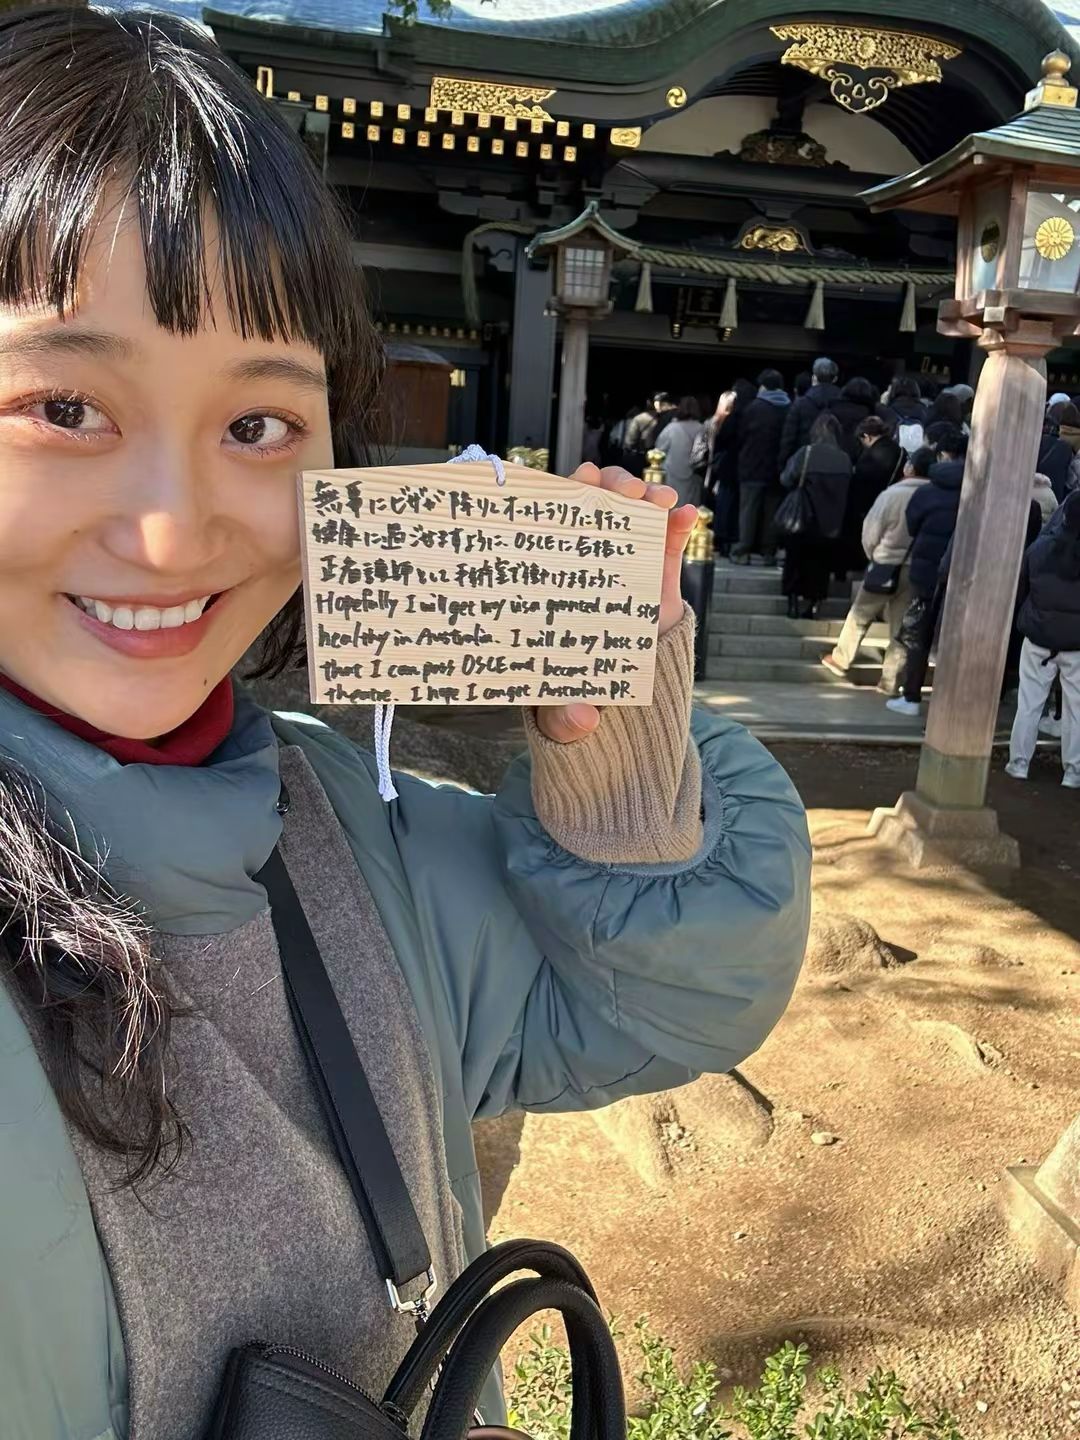 無事にビザが降りてオーストラリアに行って
健康に過ごせますように、OSCEに合格して
正看護師として手術室で働けますように、
Hopefully I will get my visa granted and stay
healthy in Australia. I will do my best so
that I can pass OSCE and become RN in
theatre. I hope I can get Australian PR.